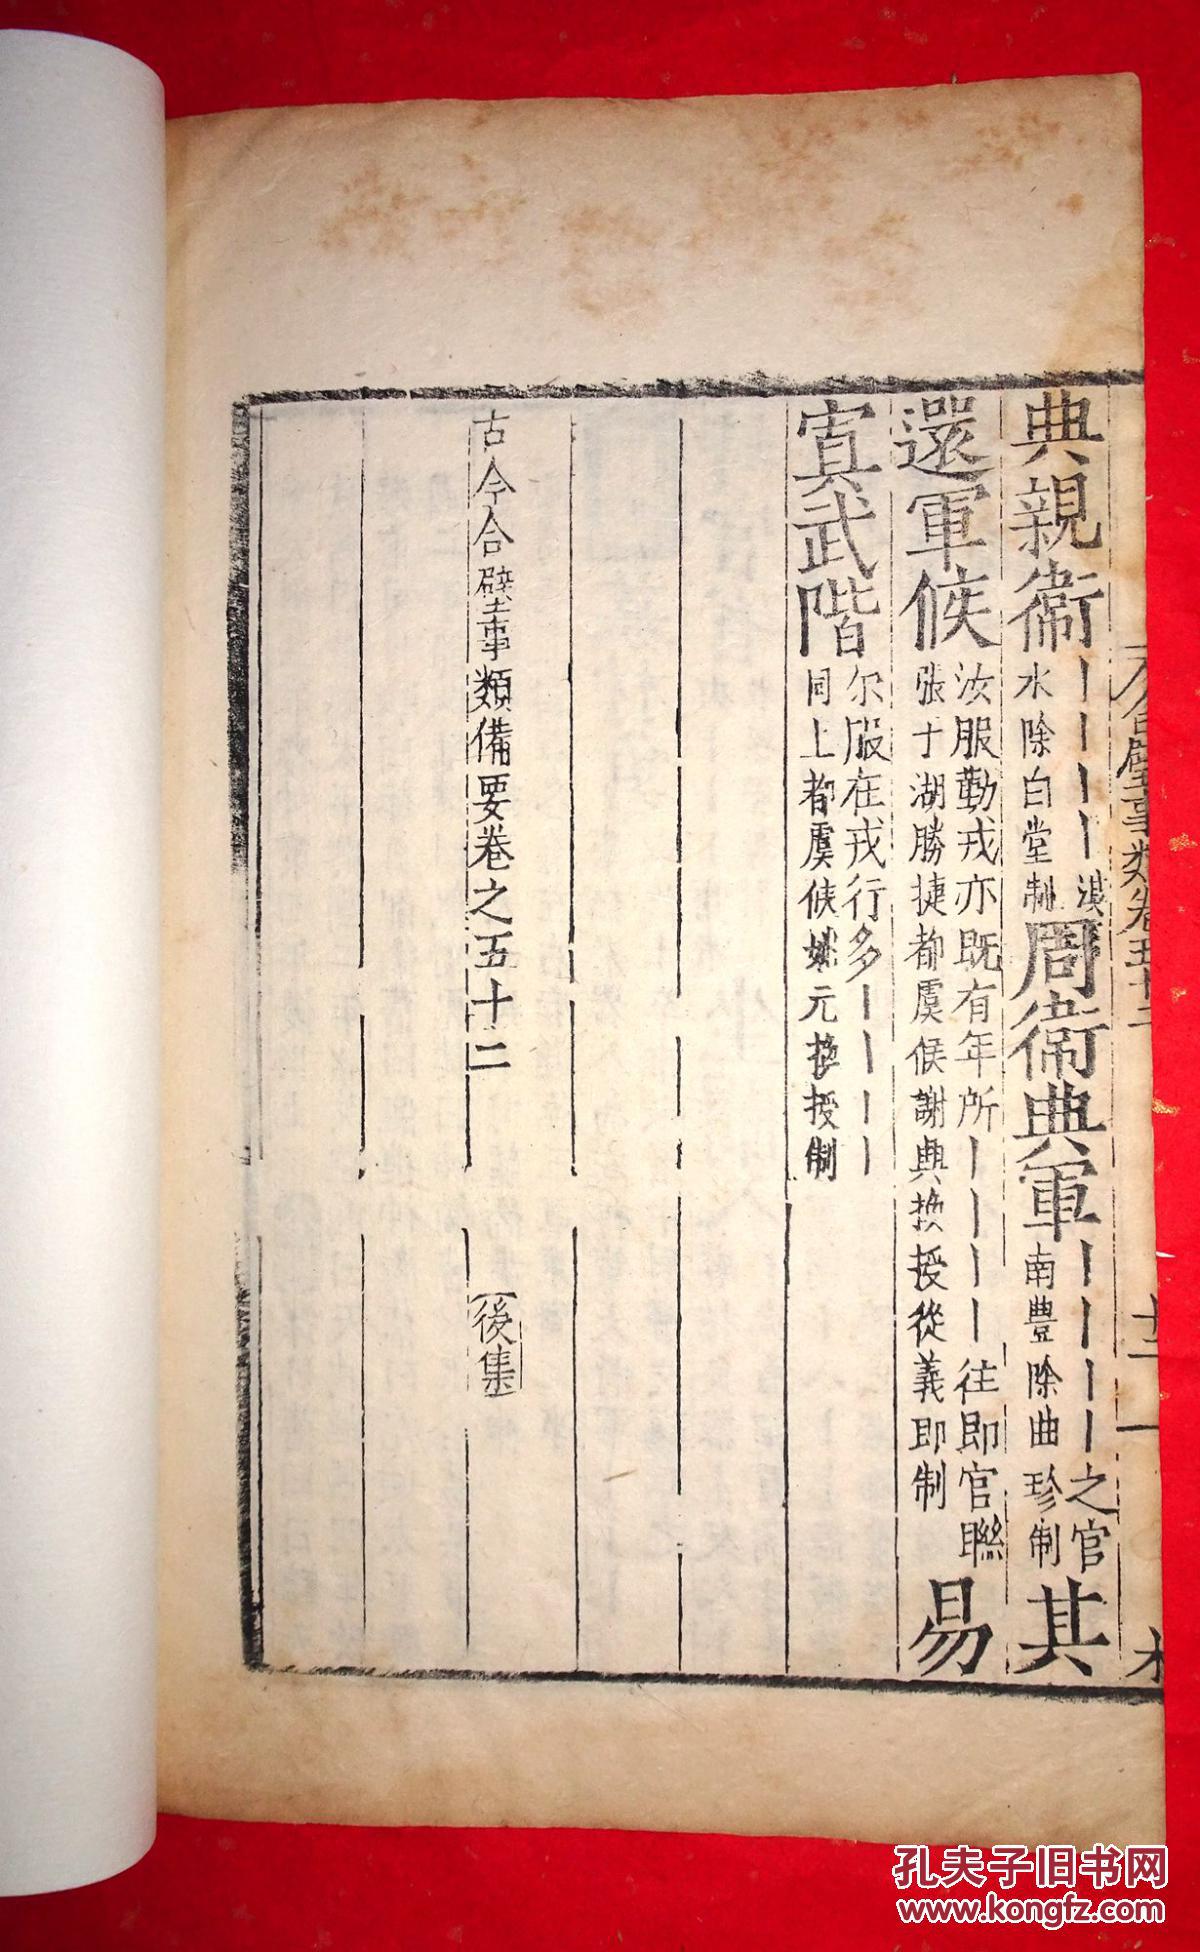 合璧事類卷五十二
典親衛｜｜｜｜漢水除白堂制周衛典軍｜｜｜｜之官南豊除曲珍制其
還軍候汝服勤戎亦既有年所｜｜｜｜往即官聯張于湖勝捷都虞候謝興換授從義即制易
寘武階尔服在戎行多｜｜｜｜同上都虞候姚元換授制
古今合璧事類備要卷之五十二
後集
孔夫子旧书网
www.kongfz.com